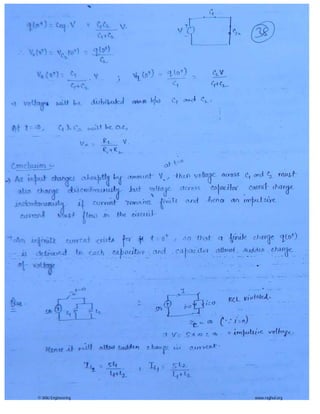 q(0⁺) = Ceq. V = C₁C₂ / C₁+C₂ V.
38
V₂(0⁺) = V_C₂(0⁺) = q(0⁺) / C₂
V₂(0⁺) = C₁ / C₁+C₂ . V ; V₁(0⁺) = q(0⁺) / C₁ = C₂V / C₁+C₂
voltages will be distributed b/w C₁ and C₂.
At t=∞, C₁ & C₂ will be o.c,
V∞ = R₂ / R₁+R₂ V.
Conclusion :-
at t=0
As input changes abruptly by amount V, then voltage across C₁ and C₂ must
also change discontinuously but voltage across capacitor cannot change
instantaneously if current remains finite and hence an impulsive
current must flow in the circuit.
infinite current exists for t=0⁺, so that a finite charge q(0⁺)
is delivered to each capacitor and capacitor allows sudden change
of voltage
Que.
t=0
KCL violated.
i=0
V = 5×∞ = ∞ = impulsive voltage.
Hence it will allow sudden change in current.
I_L₂ = 5L₁ / L₁+L₂ , I_L₁ = 5L₂ / L₁+L₂
© Wiki Engineering
www.raghul.org